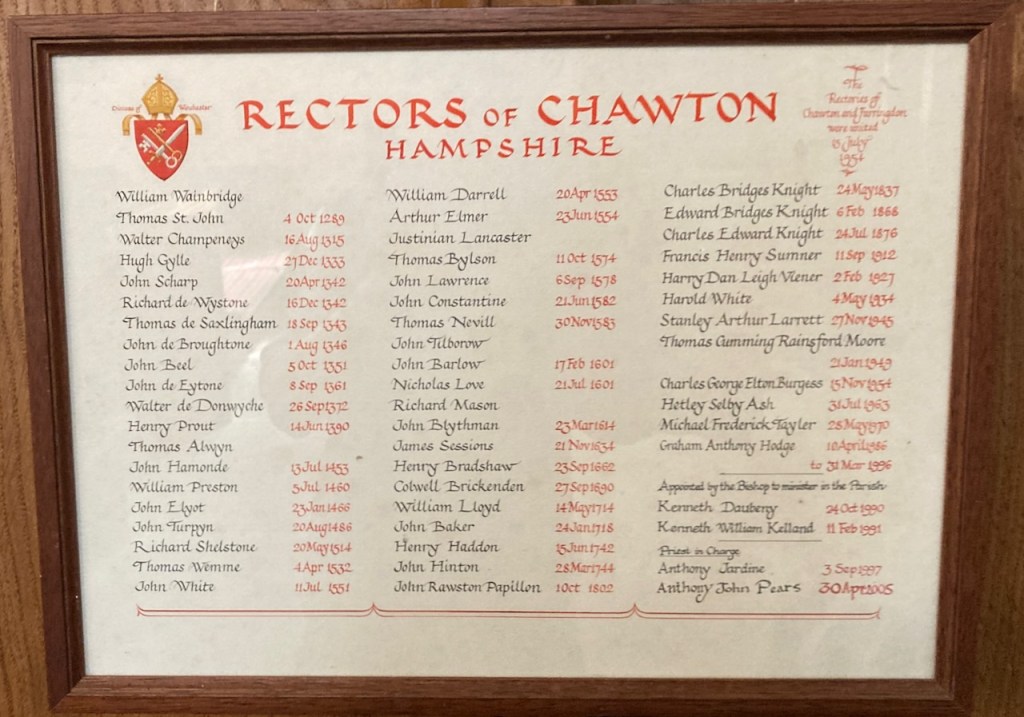 Diocese of Winchester
RECTORS OF CHAWTON
HAMPSHIRE
The
Rectories of
Chawton and Farringdon
were united
July
1954
William Wainbridge
Thomas St. John 4 Oct 1289
Walter Champeneys 16 Aug 1315
Hugh Gylle 27 Dec 1333
John Scharp 20 Apr 1342
Richard de Wystone 16 Dec 1342
Thomas de Saxlingham 18 Sep 1343
John de Broughtone 1 Aug 1346
John Beel 5 Oct 1351
John de Eytone 8 Sep 1361
Walter de Donwyche 26 Sep 1372
Henry Prout 14 Jun 1390
Thomas Alwyn
John Hamonde 13 Jul 1453
William Preston 5 Jul 1460
John Elyot 23 Jan 1466
John Turpyn 20 Aug 1486
Richard Shelstone 20 May 1514
Thomas Wemme 4 Apr 1532
John White 11 Jul 1551
William Darrell 20 Apr 1553
Arthur Elmer 23 Jun 1554
Justinian Lancaster
Thomas Bylson 11 Oct 1574
John Lawrence 6 Sep 1578
John Constantine 21 Jun 1582
Thomas Nevill 30 Nov 1583
John Tilborow
John Barlow 17 Feb 1601
Nicholas Love 21 Jul 1601
Richard Mason
John Blythman 23 Mar 1614
James Sessions 21 Nov 1634
Henry Bradshaw 23 Sep 1662
Colwell Brickenden 27 Sep 1690
William Lloyd 14 May 1714
John Baker 24 Jan 1718
Henry Haddon 15 Jun 1742
John Hinton 28 Mar 1744
John Rawston Papillon 1 Oct 1802
Charles Bridges Knight 24 May 1837
Edward Bridges Knight 6 Feb 1868
Charles Edward Knight 24 Jul 1876
Francis Henry Sumner 11 Sep 1912
Harry Dan Leigh Viener 2 Feb 1927
Harold White 4 May 1934
Stanley Arthur Larrett 27 Nov 1945
Thomas Cumming Rainsford Moore
21 Jan 1949
Charles George Elton Burgess 15 Nov 1954
Hetley Selby Ash 31 Jul 1963
Michael Frederick Tayler 28 May 1970
Graham Anthony Hodge 10 April 1986
to 31 Mar 1996
Appointed by the Bishop to minister in the Parish
Kenneth Daubeny 24 Oct 1990
Kenneth William Kelland 11 Feb 1991
Priest in Charge
Anthony Jardine 3 Sep 1997
Anthony John Pears 30 Apr 2005